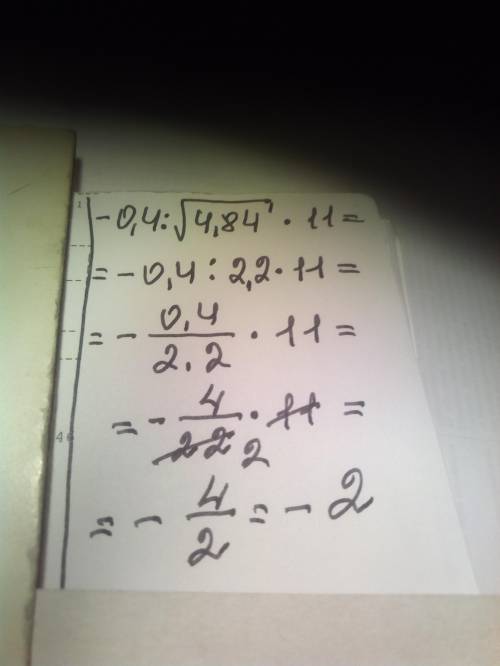 -0,4:√4,84 · 11 =
= -0,4 : 2,2 · 11 =
= - 0,4/2.2 · 11 =
= - 4/22 2 · 11 =
= - 4/2 = - 2